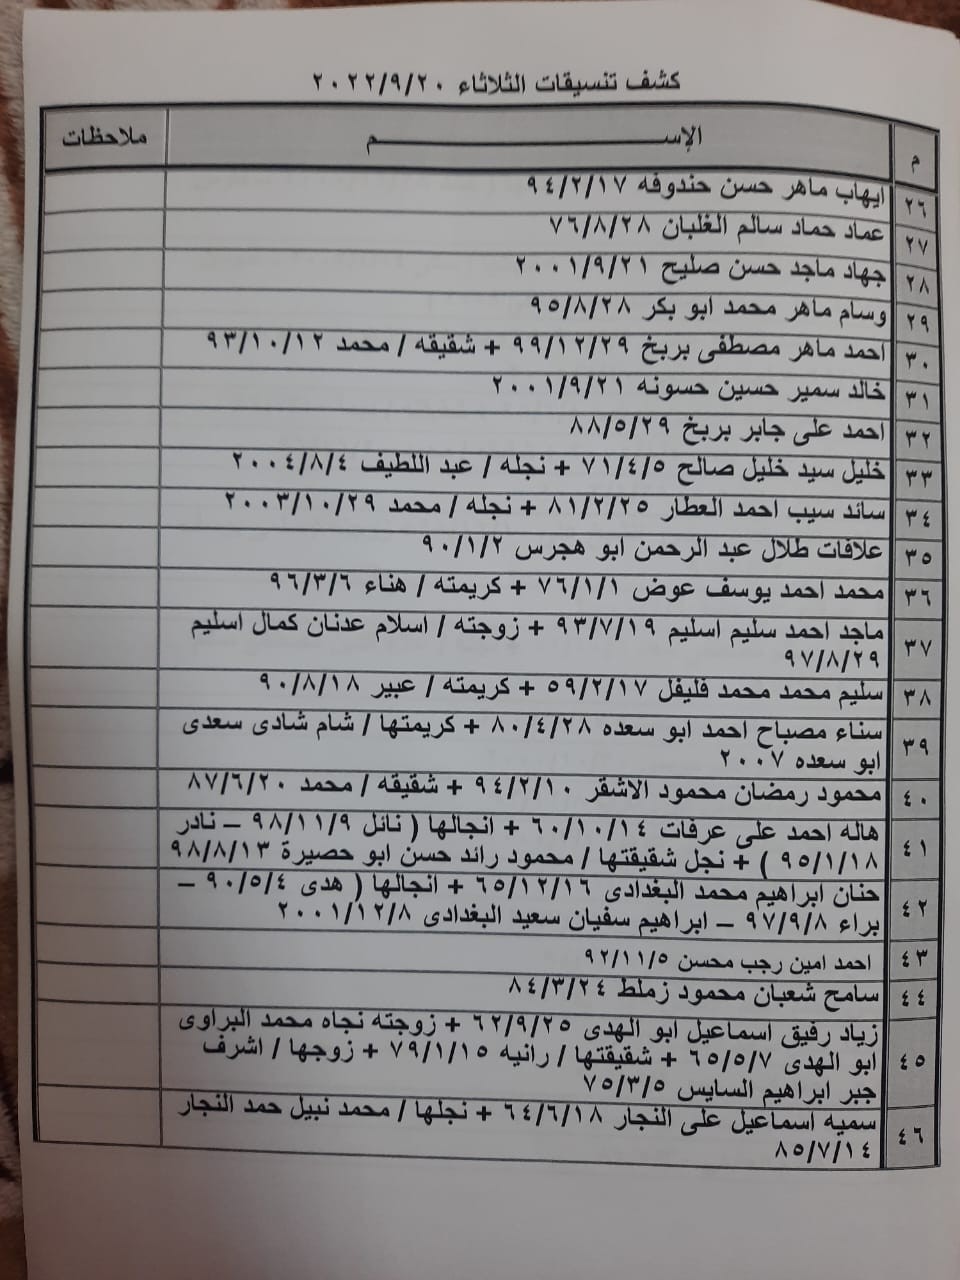 كشف تنسيقات الثلاثاء ٢٠٢٢/٩/٢٠
م الإســـم ملاحظات
٢٦ ايهاب ماهر حسن حندوقه ٩٤/٢/١٧
٢٧ عماد حماد سالم الغلبان ٧٦/٨/٢٨
٢٨ جهاد ماجد حسن صليح ٢٠٠١/٩/٢١
٢٩ وسام ماهر محمد ابو بكر ٩٥/٨/٢٨
٣٠ احمد ماهر مصطفى بربخ ٩٩/١٢/٢٩ + شقيقه / محمد ٩٣/١٠/١٢
٣١ خالد سمير حسين حسونه ٢٠٠١/٩/٢١
٣٢ احمد على جابر بربخ ٨٨/٥/٢٩
٣٣ خليل سيد خليل صالح ٧١/٤/٥ + نجله / عبد اللطيف ٢٠٠٤/٨/٤
٣٤ سائد سيب احمد العطار ٨١/٢/٢٥ + نجله / محمد ٢٠٠٣/١٠/٢٩
٣٥ علافات طلال عبد الرحمن ابو هجرس ٩٠/١/٢
٣٦ محمد احمد يوسف عوض ٧٦/١/١ + كريمته / هناء ٩٦/٣/٦
٣٧ ماجد احمد سليم اسليم ٩٣/٧/١٩ + زوجته / اسلام عدنان كمال اسليم
٩٧/٨/٢٩
٣٨ سليم محمد محمد فليفل ٥٩/٢/١٧ + كريمته / عبير ٩٠/٨/١٨
٣٩ سناء مصباح احمد ابو سعده ٨٠/٤/٢٨ + كريمتها / شام شادى سعدى
ابو سعده ٢٠٠٧
٤٠ محمود رمضان محمود الاشقر ٩٤/٢/١٠ + شقيقه / محمد ٨٧/٦/٢٠
٤١ هاله احمد على عرفات ٦٠/١٠/١٤ + انجالها ( نائل ٩٨/١١/٩ – نادر
٩٥/١/١٨ ) + نجل شقيقتها / محمود رائد حسن ابو حصيرة ٩٨/٨/١٣
٤٢ حنان ابراهيم محمد البغدادى ٦٥/١٢/١٦ + انجالها ( هدى ٩٠/٥/٤ –
براء ٩٧/٩/٨ – ابراهيم سفيان سعيد البغدادى ٢٠٠١/١٢/٨
٤٣ احمد امين رجب محسن ٩٢/١١/٥
٤٤ سامح شعبان محمود زملط ٨٤/٣/٢٤
٤٥ زياد رفيق اسماعيل ابو الهدى ٦٢/٩/٢٥ + زوجته نجاه محمد البراوى
ابو الهدى ٦٥/٥/٧ + شقيقتها / رانيه ٧٩/١/١٥ + زوجها / اشرف
جبر ابراهيم السايس ٧٥/٣/٥
٤٦ سميه اسماعيل على النجار ٦٤/٦/١٨ + نجلها / محمد نبيل حمد النجار
٨٥/٧/١٤